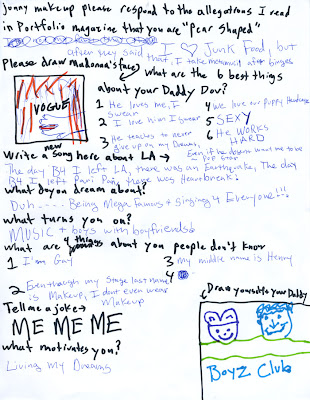 jonny makeup please respond to the allegations I read
in Portfolio magazine that you are "pear shaped"
after they said that, I ♡ Junk Food, but
I take metamucil after binges
Please draw madonna's face ↴
what are the 6 best things
about your Daddy Dov?
VOGUE
1 He loves me, I
swear
2 I love him I swear
3 He teaches to never
give up my Dreams,
4 we love our puppy
5 SEXY
6 He WORKS
HARD
Even if he doesnt want me to be
Pop Star
new
Write a song here about LA →
The day B4 I left LA, there was an Earthquake, The day
B4 I left Pani Poni, there was Heartbreak.
what do you dream about?
Duh ---- Being Mega Famous + Singing 4 Everyone!!!
what turns you on?
MUSIC + boys with boyfriends
what are 4 things about you people don't know
1 I'm Gay
2 Even though my Stage last name
is Makeup, I dont even wear
Makeup
3 my middle name is Henry
4
Tell me a joke →
ME ME ME
what motivates you?
Living My Dreams
Draw yourself & your Daddy
Boyz Club